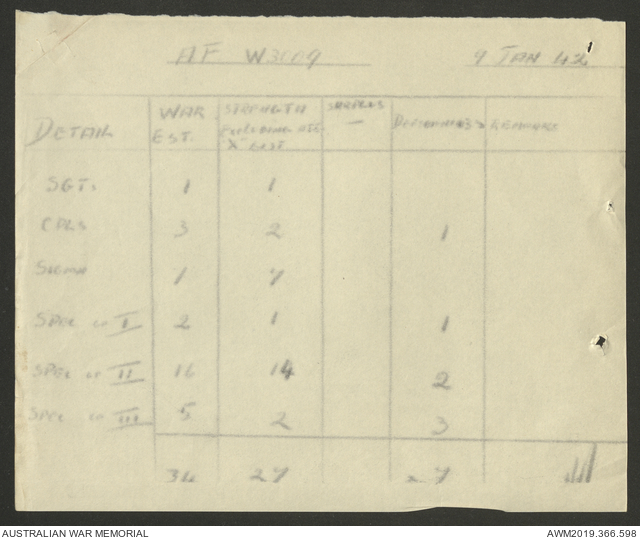 AF W3009 9 JAN 42
DETAIL WAR EST. STRENGTH EXCLUDING "X" LIST SURPLUS — REMARKS
SGTS 1 1
CPLS 3 2 1
SIGMN 7
SPEC GP I 2 1 1
SPEC GP II 16 14 2
SPEC GP III 5 2 3
34 27 7
AUSTRALIAN WAR MEMORIAL AWM2019.366.598